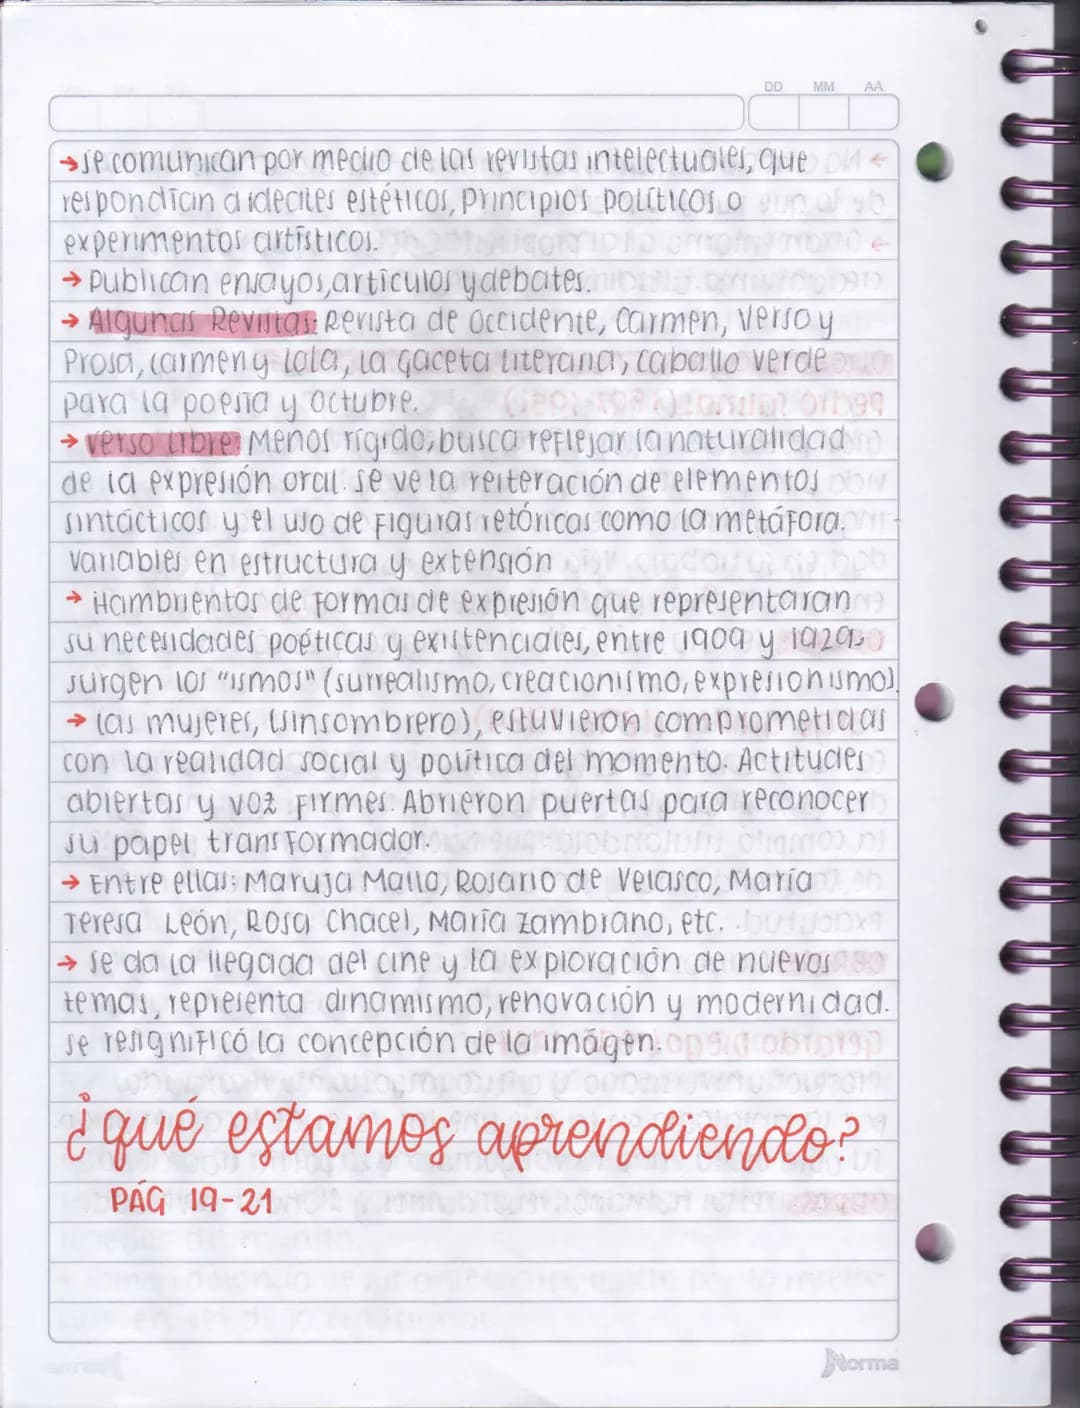 DD MM AA
→ se comunican por medio de las revistas intelectuales, que
respondían a ideales estéticos, principios políticos o
experimentos artísticos.
→ Publican ensayos, artículos y debates.
→ Algunas Revistas: Revista de occidente, Carmen, Verso y
Prosa, carmen y Lola, La gaceta Literaria, caballo verde
para la poesía y octubre.
→ verso Libre: Menos rígido, busca reflejar la naturalidad
de la expresión oral. se ve la reiteración de elementos
sintácticos y el uso de figuras retóricas como la metáfora.
Variables en estructura y extensión
→ Hambrientos de formas de expresión que representaran
su necesidades poéticas y existenciales, entre 1909 y 1929,
surgen los "ismos" (surrealismo, creacionismo, expresionismo).
→ las mujeres, (sinsombrero), estuvieron comprometidas
con la realidad social y política del momento. Actitudes
abiertas y voz firmes. Abrieron puertas para reconocer
su papel transformador.
→ Entre ellas: Maruja Mallo, Rosario de Velasco, María
Teresa León, Rosa Chacel, María Zambrano, etc.
→ se da la llegada del cine y la exploración de nuevos
temas, representa dinamismo, renovación y modernidad.
se resignificó la concepción de la imágen.
¿qué estamos aprendiendo?
PÁG 19-21
Norma